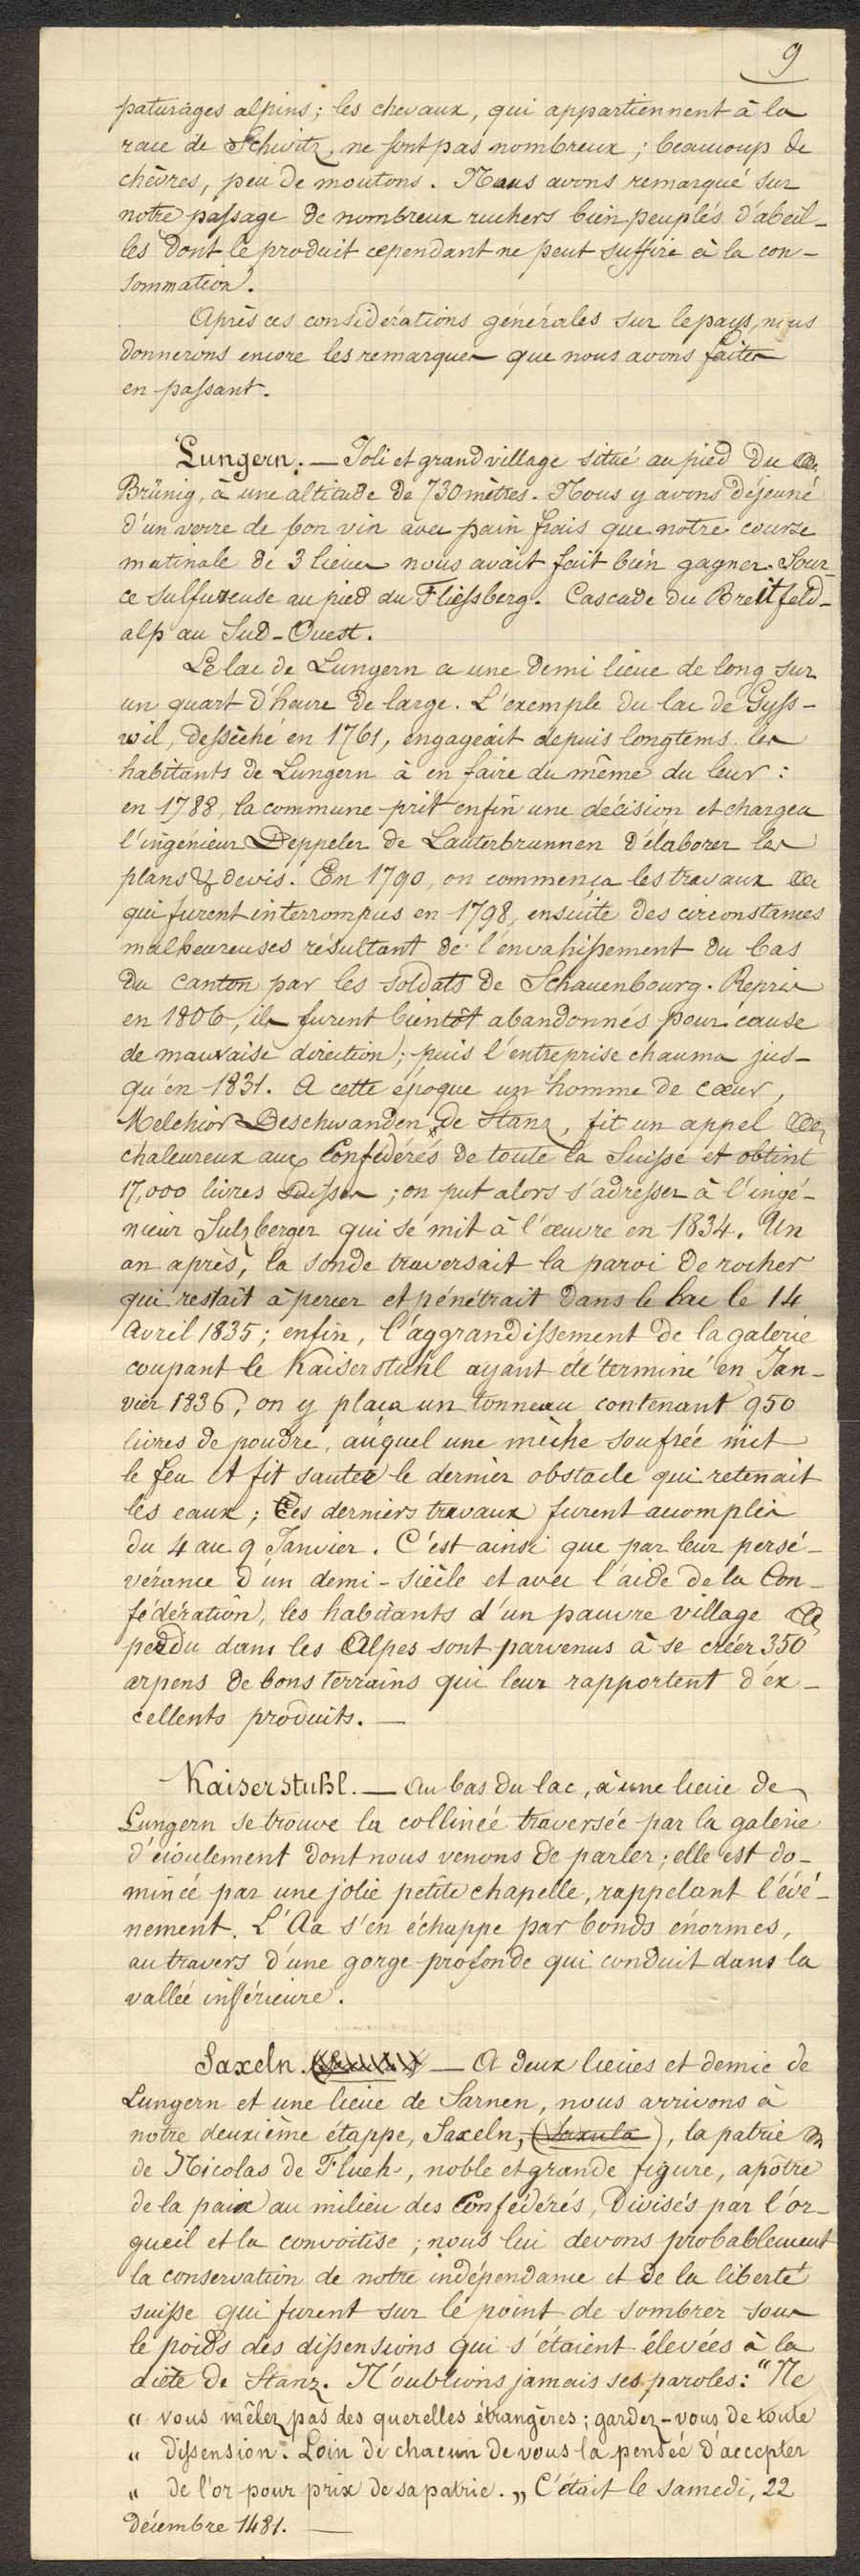 9
paturages alpins; les chevaux, qui appartiennent à la
race de Schwitz, ne sont pas nombreux; beaucoup de
chèvres, peu de moutons. Nous avons remarqué sur
notre passage de nombreux ruchers bien peuplés d'abeil-
les dont le produit cependant ne peut suffire à la con-
sommation.
Après ces considérations générales sur le pays, nous
donnerons encore les remarques que nous avons faites
en passant.
Lungern. — Joli et grand village situé au pied du
Brünig, à une altitude de 730 mètres. Nous y avons déjeuné
d'un verre de bon vin avec pain frais que notre course
matinale de 3 lieues nous avait fait bien gagner. Sour-
ce sulfureuse au pied du Fliessberg. Cascade du Breitfeld-
alp au Sud-Ouest.
Le lac de Lungern a une demi lieue de long sur
un quart d'heure de large. L'exemple du lac de Gyss-
wil, desséché en 1761, engageait depuis longtems les
habitants de Lungern à en faire du même du leur:
en 1788, la commune prit enfin une décision et chargea
l'ingénieur Deppeler de Lauterbrunnen d'élaborer les
plans & devis. En 1790, on commença les travaux
qui furent interrompus en 1798, ensuite des circonstances
malheureuses résultant de l'envahissement du bas
du canton par les soldats de Schauenbourg. Repris
en 1806, ils furent bientôt abandonnés pour cause
de mauvaise direction; puis l'entreprise chauma jus-
qu'en 1831. A cette époque un homme de cœur,
Melchior Deschwanden, de Stanz, fit un appel
chaleureux aux Confédérés de toute la Suisse et obtint
17,000 livres suisses; on put alors s'adresser à l'ingé-
nieur Sulzberger qui se mit à l'œuvre en 1834. Un
an après, la sonde traversait la paroi de rocher
qui restait à percer et pénétrait dans le lac le 14
Avril 1835; enfin, l'aggrandissement de la galerie
coupant le Kaiserstuhl ayant été terminé en Jan-
vier 1836, on y plaça un tonneau contenant 950
livres de poudre, auquel une mèche soufrée mit
le feu et fit sauter le dernier obstacle qui retenait
les eaux; Ces derniers travaux furent accomplis
du 4 au 9 Janvier. C'est ainsi que par leur persé-
vérance d'un demi-siècle et avec l'aide de la Con-
fédération, les habitants d'un pauvre village
perdu dans les Alpes sont parvenus à se créer 350
arpens de bons terrains qui leur rapportent d'ex-
cellents produits. —
Kaiserstuhl. — Au bas du lac, à une lieue de
Lungern se trouve la colline traversée par la galerie
d'écoulement dont nous venons de parler; elle est do-
minée par une jolie petite chapelle, rappelant l'évé-
nement. L'Aa s'en échappe par bonds énormes,
au travers d'une gorge profonde qui conduit dans la
vallée inférieure.
Saxeln. — A deux lieues et demie de
Lungern et une lieue de Sarnen, nous arrivons à
notre deuxième étappe, Saxeln, (Saxula), la patrie
de Nicolas de Flueh, noble et grande figure, apôtre
de la paix au milieu des Confédérés, divisés par l'or-
gueil et la convoitise; nous lui devons probablement
la conservation de notre indépendance et de la liberté
suisse qui furent sur le point de sombrer sous
le poids des dissensions qui s'étaient élevées à la
diète de Stanz. N'oublions jamais ses paroles: "Ne
" vous mêlez pas des querelles étrangères; gardez-vous de toute
" dissension. Loin de chacun de vous la pensée d'accepter
" de l'or pour prix de sa patrie. „ C'était le samedi, 22
décembre 1481. —